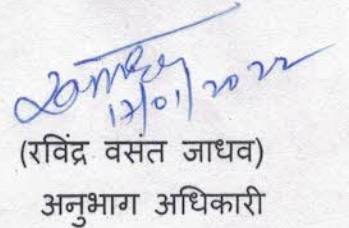 17/01/2022
(रविंद्र वसंत जाधव)
अनुभाग अधिकारी